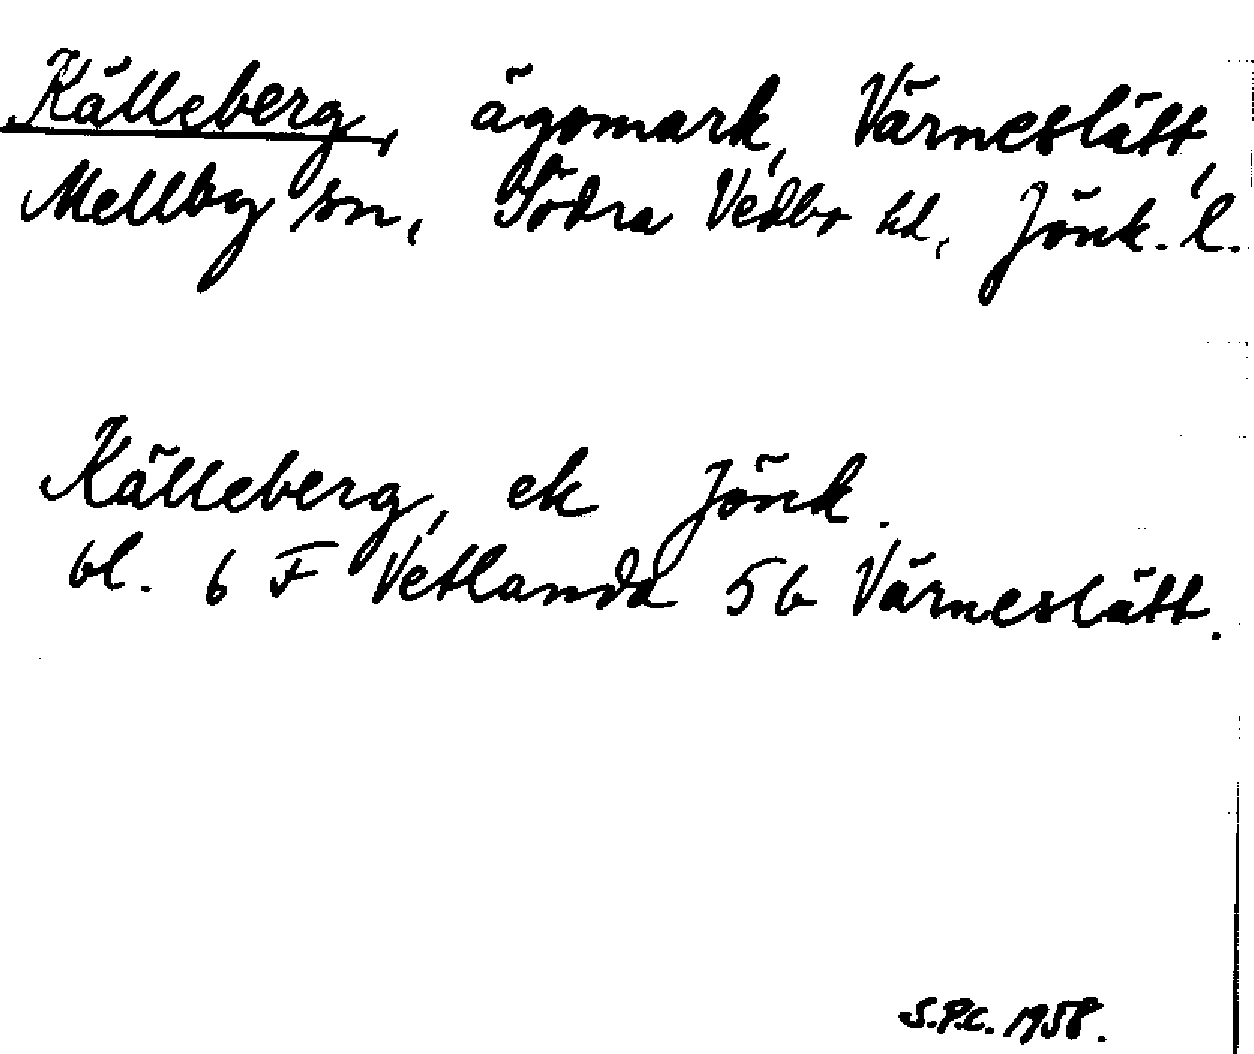 Källeberg, ägomark, Värneslätt,
Mellby sn, Södra Vedbo hd, Jönk. l.
Källeberg, ek Jönk.
bl. 6 F Vetlanda 5 b Värneslätt.
S.P.C. 1958.